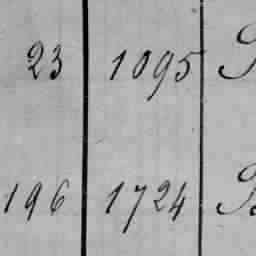 23 1095
196 1724